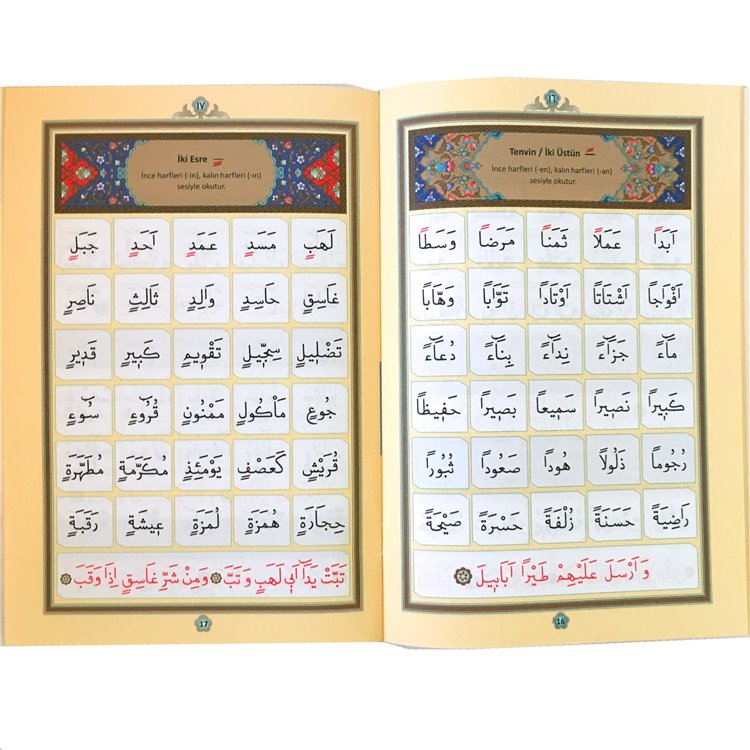 ١٦
Tenvin / İki Üstün ـًـ
İnce harfleri (-en), kalın harfleri (-an)
sesiyle okutur.
اَبَدًا عَمَلًا ثَمَنًا مَرَضًا وَسَطًا
اَفْوَاجًا اَشْتَاتًا اَوْتَادًا تَوَّابًا وَهَّابًا
مَٓاءً جَزَٓاءً نِدَٓاءً بِنَٓاءً دُعَٓاءً
كَبٖيرًا نَصٖيرًا سَمٖيعًا بَصٖيرًا حَفٖيظًا
رُجُومًا ذَلُولًا هُودًا صَعُودًا ثُبُورًا
رَاضِيَةً حَسَنَةً زُلْفَةً حَسْرَةً صَيْحَةً
وَ اَرْسَلَ عَلَيْهِمْ طَيْرًا اَبَابٖيلَ
16
١٧
İki Esre ـٍـ
İnce harfleri (-in), kalın harfleri (-ın)
sesiyle okutur.
لَهَبٍ مَسَدٍ عَمَدٍ اَحَدٍ جَبَلٍ
غَاسِقٍ حَاسِدٍ وَالِدٍ ثَالِثٍ نَاصِرٍ
تَضْلٖيلٍ سِجّٖيلٍ تَقْوٖيمٍ كَبٖيرٍ قَدٖيرٍ
جُوعٍ مَأْكُولٍ مَمْنُونٍ قُرُٓوءٍ سُٓوءٍ
قُرَيْشٍ كَعَصْفٍ يَوْمَئِذٍ مُكَرَّمَةٍ مُطَهَّرَةٍ
حِجَارَةٍ هُمَزَةٍ لُمَزَةٍ عٖيشَةٍ رَقَبَةٍ
تَبَّتْ يَدَٓا اَبٖي لَهَبٍ وَ تَبَّ وَمِنْ شَرِّ غَاسِقٍ اِذَا وَقَبَ
17